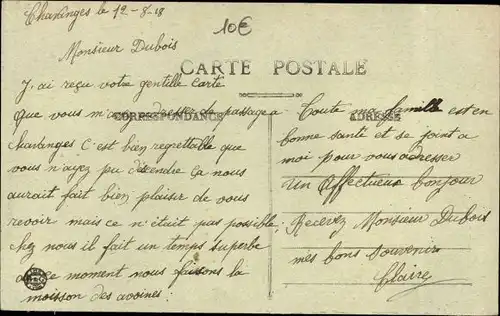 Chavanges le 12-8-18
10€
Monsieur Dubois
CARTE POSTALE
J'ai reçu votre gentille carte
que vous m'avez adresser de passage a
CORRESPONDANCE
chavanges c'est bien regrettable que
vous n'ayez pu décendre ça nous
aurait fait bien plaisir de vous
revoir mais ce n'était pas possible.
chez nous il fait un temps superbe
en ce moment nous faisons la
moisson des avoines.
Toute ma famille est en
ADRESSE
bonne santé et se joint a
moi pour vous adresser
Un Affectueux bonjour
Recevez Monsieur Dubois
mes bons souvenirs
Claire